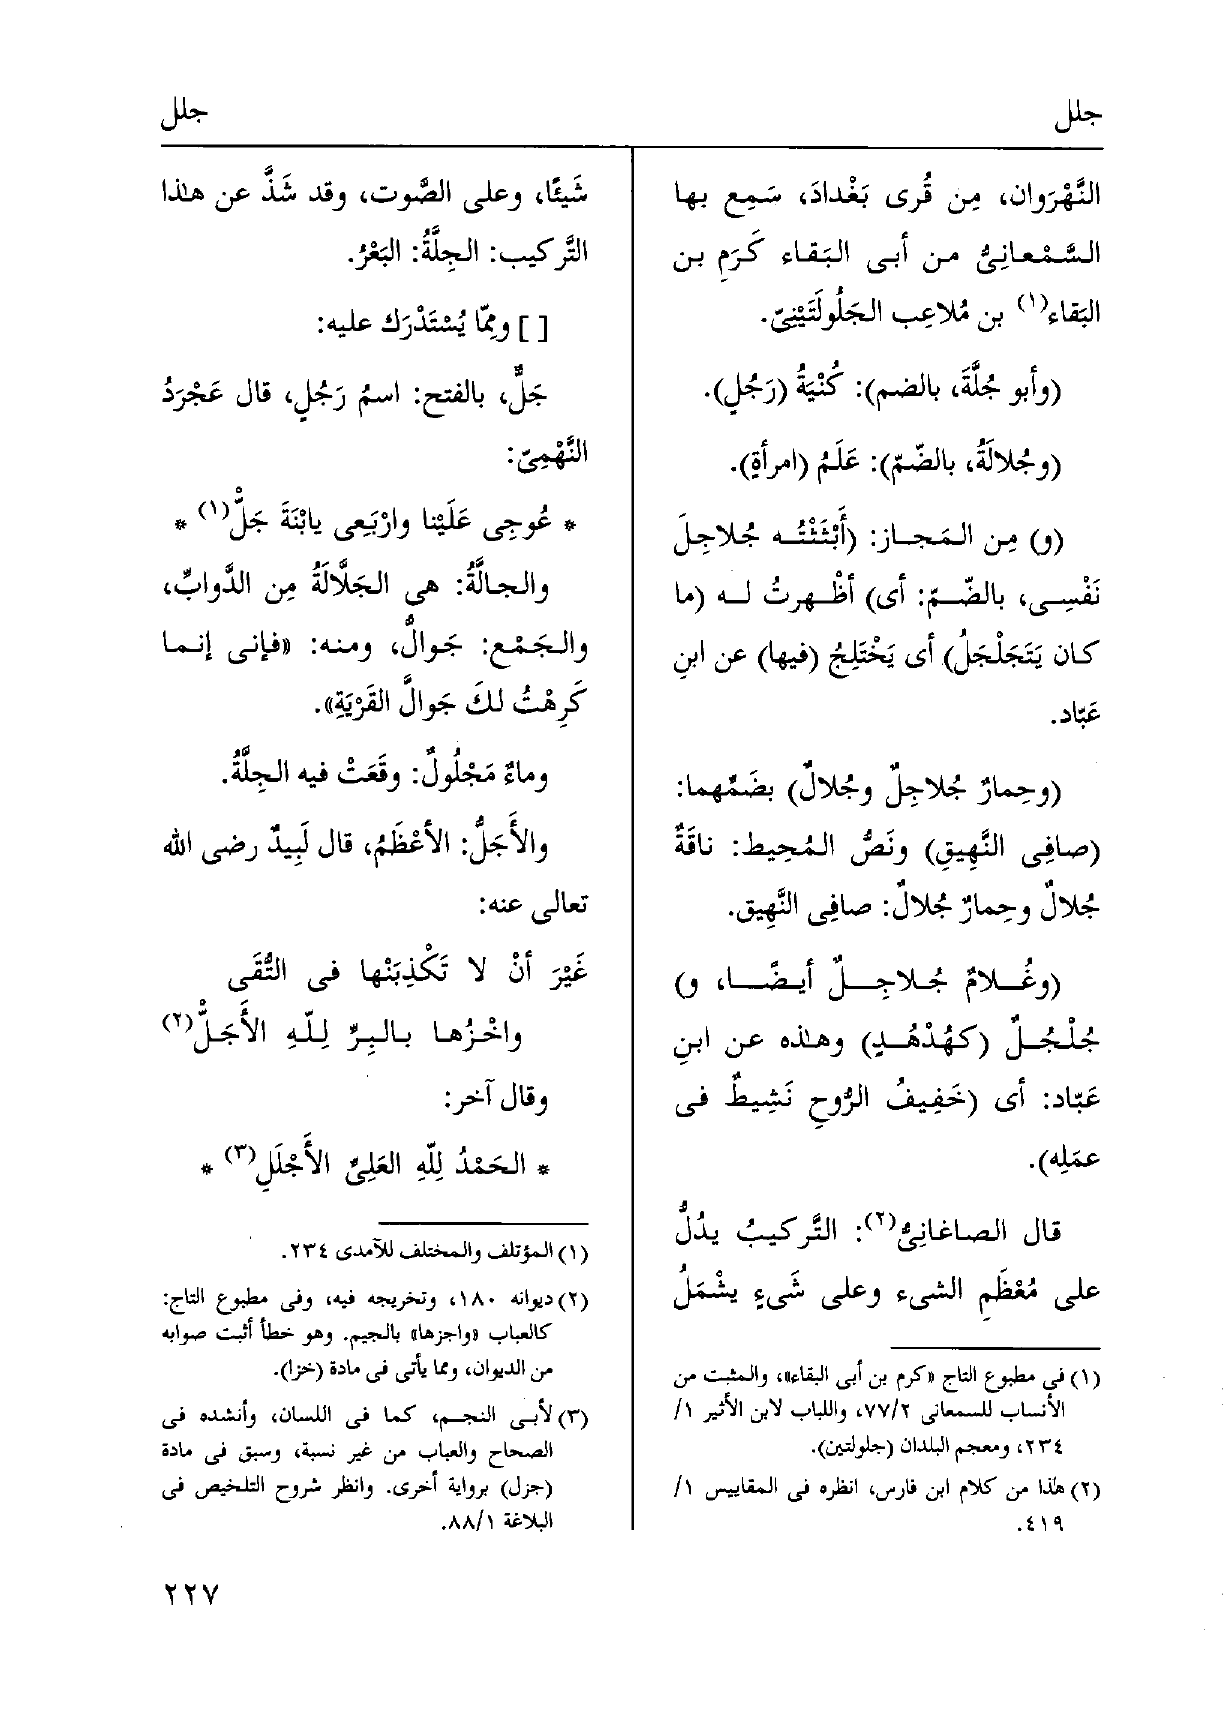 جلل
جلل
النَّهْرَوان، مِن قُرى بَغْدادَ، سَمِع بها
السَّمْعانِىُّ من أبى البَقاء كَرَمِ بن
البَقاء(١) بن مُلاعِب الجَلُولَتَيْنِىّ.
(وأبو جُلَّةَ، بالضم): كُنْيَةُ (رَجُلٍ).
(وجُلالَةُ، بالضّمّ): عَلَمُ (امرأةٍ).
(و) مِن المَجاز: (أَبْثَثْتُه جُلاجِلَ
نَفْسِى، بالضّمّ: أى) أظْهرتُ له (ما
كان يَتَجَلْجَلُ) أى يَخْتَلِجُ (فيها) عن ابنِ
عَبّاد.
(وحِمارٌ جُلاجِلٌ وجُلالٌ) بضَمِّهما:
(صافِى النَّهِيقِ) ونَصُّ المُحِيط: ناقَةٌ
جُلالٌ وحِمارٌ جُلالٌ: صافِى النَّهِيق.
(وغُلامٌ جُلاجِلٌ أيضًا، و)
جُلْجُلٌ (كهُدْهُدٍ) وهٰذه عن ابنِ
عَبّاد: أى (خَفِيفُ الرُّوحِ نَشِيطٌ فى
عمَلِه).
قال الصاغانِىُّ(٢): التَّركيبُ يدُلُّ
على مُعْظَمِ الشىء وعلى شَىءٍ يشْمَلُ
(١) فى مطبوع التاج «كرم بن أبى البقاء»، والمثبت من
الأنساب للسمعانى ٧٧/٢، واللباب لابن الأثير ١/
٢٣٤، ومعجم البلدان (جلولتين).
(٢) هٰذا من كلام ابن فارس، انظره فى المقاييس ١/
٤١٩.
شَيئًا، وعلى الصَّوت، وقد شَذَّ عن هٰذا
التَّركيب: الجِلَّةُ: البَعْرُ.
[ ] ومِمّا يُسْتَدْرَك عليه:
جَلٌّ، بالفتح: اسمُ رَجُلٍ، قال عَجْرَدُ
النَّهْمِىّ:
* عُوجِى عَلَيْنا وارْبَعِى يابْنَةَ جَلّْ(١) *
والجالَّةُ: هى الجَلَّالَةُ مِن الدَّوابِّ،
والجَمْع: جَوالُّ، ومنه: «فإنى إنما
كَرِهْتُ لكَ جَوالَّ القَرْيَةِ».
وماءٌ مَجْلُولٌ: وقَعَتْ فيه الجِلَّةُ.
والأَجَلُّ: الأعْظَمُ، قال لَبِيدٌ رضى الله
تعالى عنه:
غَيْرَ أنْ لا تَكْذِبَنْها فى التُّقَى
واخْزُها بالبِرِّ لِلّهِ الأَجَلّْ(٢)
وقال آخر:
* الحَمْدُ لِلّهِ العَلِىِّ الأَجْلَلِ(٣) *
(١) المؤتلف والمختلف للآمدى ٢٣٤.
(٢) ديوانه ١٨٠، وتخريجه فيه، وفى مطبوع التاج:
كالعباب «واجزها» بالجيم. وهو خطأ أثبت صوابه
من الديوان، ومما يأتى فى مادة (خزا).
(٣) لأبى النجم، كما فى اللسان، وأنشده فى
الصحاح والعباب من غير نسبة، وسبق فى مادة
(جزل) برواية أخرى. وانظر شروح التلخيص فى
البلاغة ٨٨/١.
٢٢٧